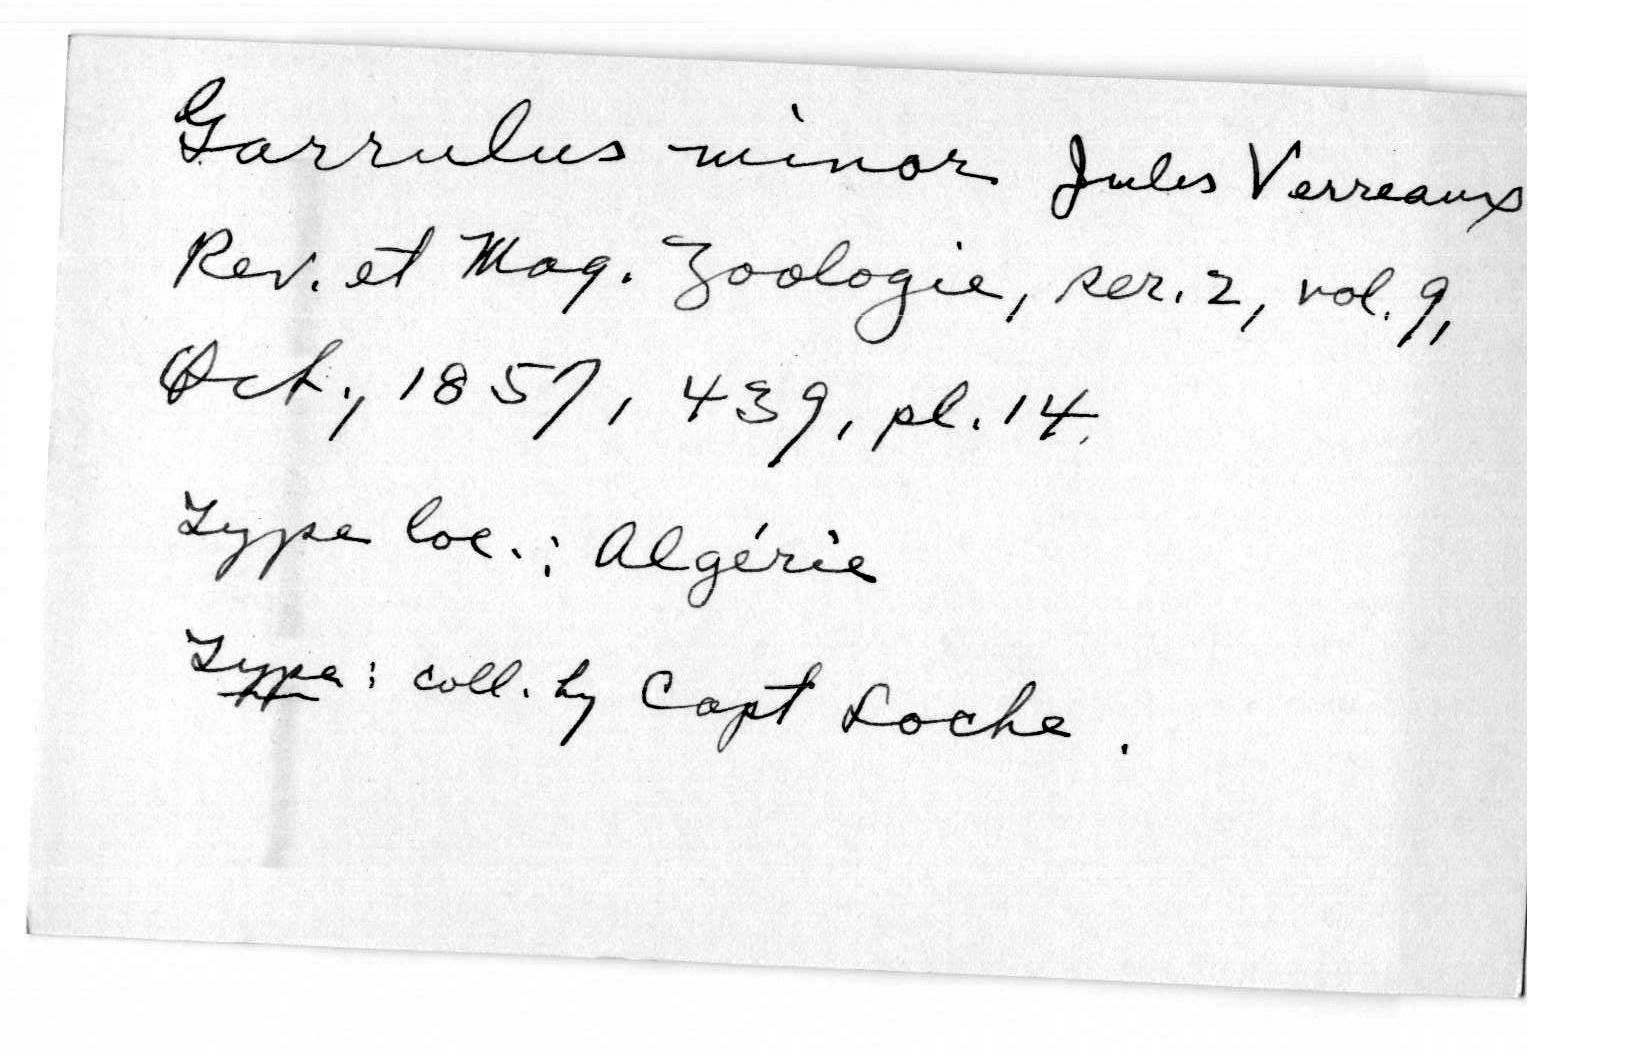 Garrulus minor Jules Verreaux
Rev. et Mag. Zoologie, ser. 2, vol. 9,
Oct., 1857, 439, pl. 14.
Type loc.: Algérie
Type: coll. by Capt Loche.